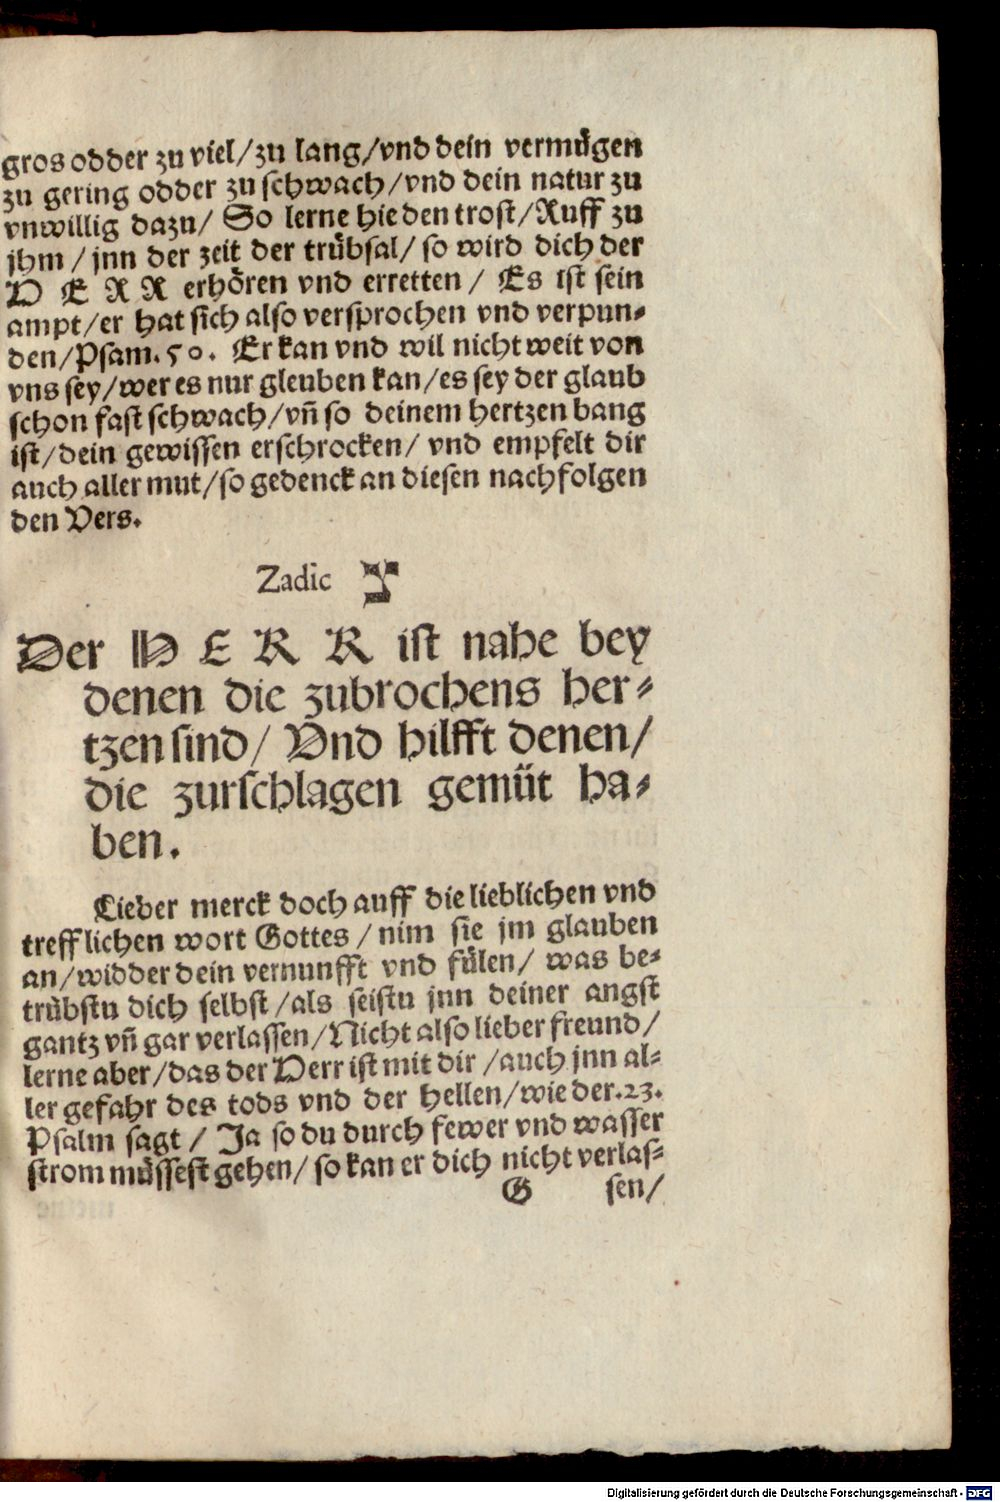 gros odder zu viel/zu lang/vnd dein vermůgen
zu gering odder zu schwach/vnd dein natur zu
vnwillig dazu/ So lerne hie den trost/Ruff zu
jhm/jnn der zeit der trůbsal/so wird dich der
H E R R erhȯren vnd erretten/ Es ist sein
ampt/er hat sich also versprochen vnd verpun⸗
den/Psam.50. Er kan vnd wil nicht weit von
vns sey/wer es nur gleuben kan/es sey der glaub
schon fast schwach/vn̄ so deinem hertzen bang
ist/dein gewissen erschrocken/ vnd empfelt dir
auch aller mut/so gedenck an diesen nachfolgen
den Vers.
Zadic צ
Der H E R R ist nahe bey
denen die zubrochens her⸗
tzen sind/ Vnd hilfft denen/
die zurschlagen gemüt ha⸗
ben.
Lieber merck doch auff die lieblichen vnd
trefflichen wort Gottes/nim sie jm glauben
an/widder dein vernunfft vnd fůlen/ was be⸗
trůbstu dich selbst/als seistu jnn deiner angst
gantz vn̄ gar verlassen/Nicht also lieber freund/
lerne aber/das der Herr ist mit dir/auch jnn al⸗
ler gefahr des tods vnd der hellen/wie der.23.
Psalm sagt/ Ja so du durch fewer vnd wasser
strom můssest gehen/so kan er dich nicht verlas⸗
G sen/
Digitalisierung gefördert durch die Deutsche Forschungsgemeinschaft - DFG